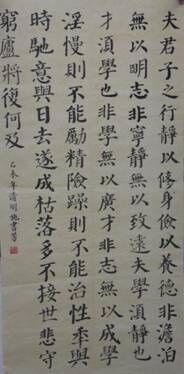 夫君子之行靜以修身儉以養德非澹泊
無以明志非寧靜無以致遠夫學湏靜也
才湏學也非學無以廣才非志無以成學
淫慢則不能勵精險躁則不能治性秊與
時馳意與日去遂成枯落多不接世悲守
窮廬將復何及
乙未年清明